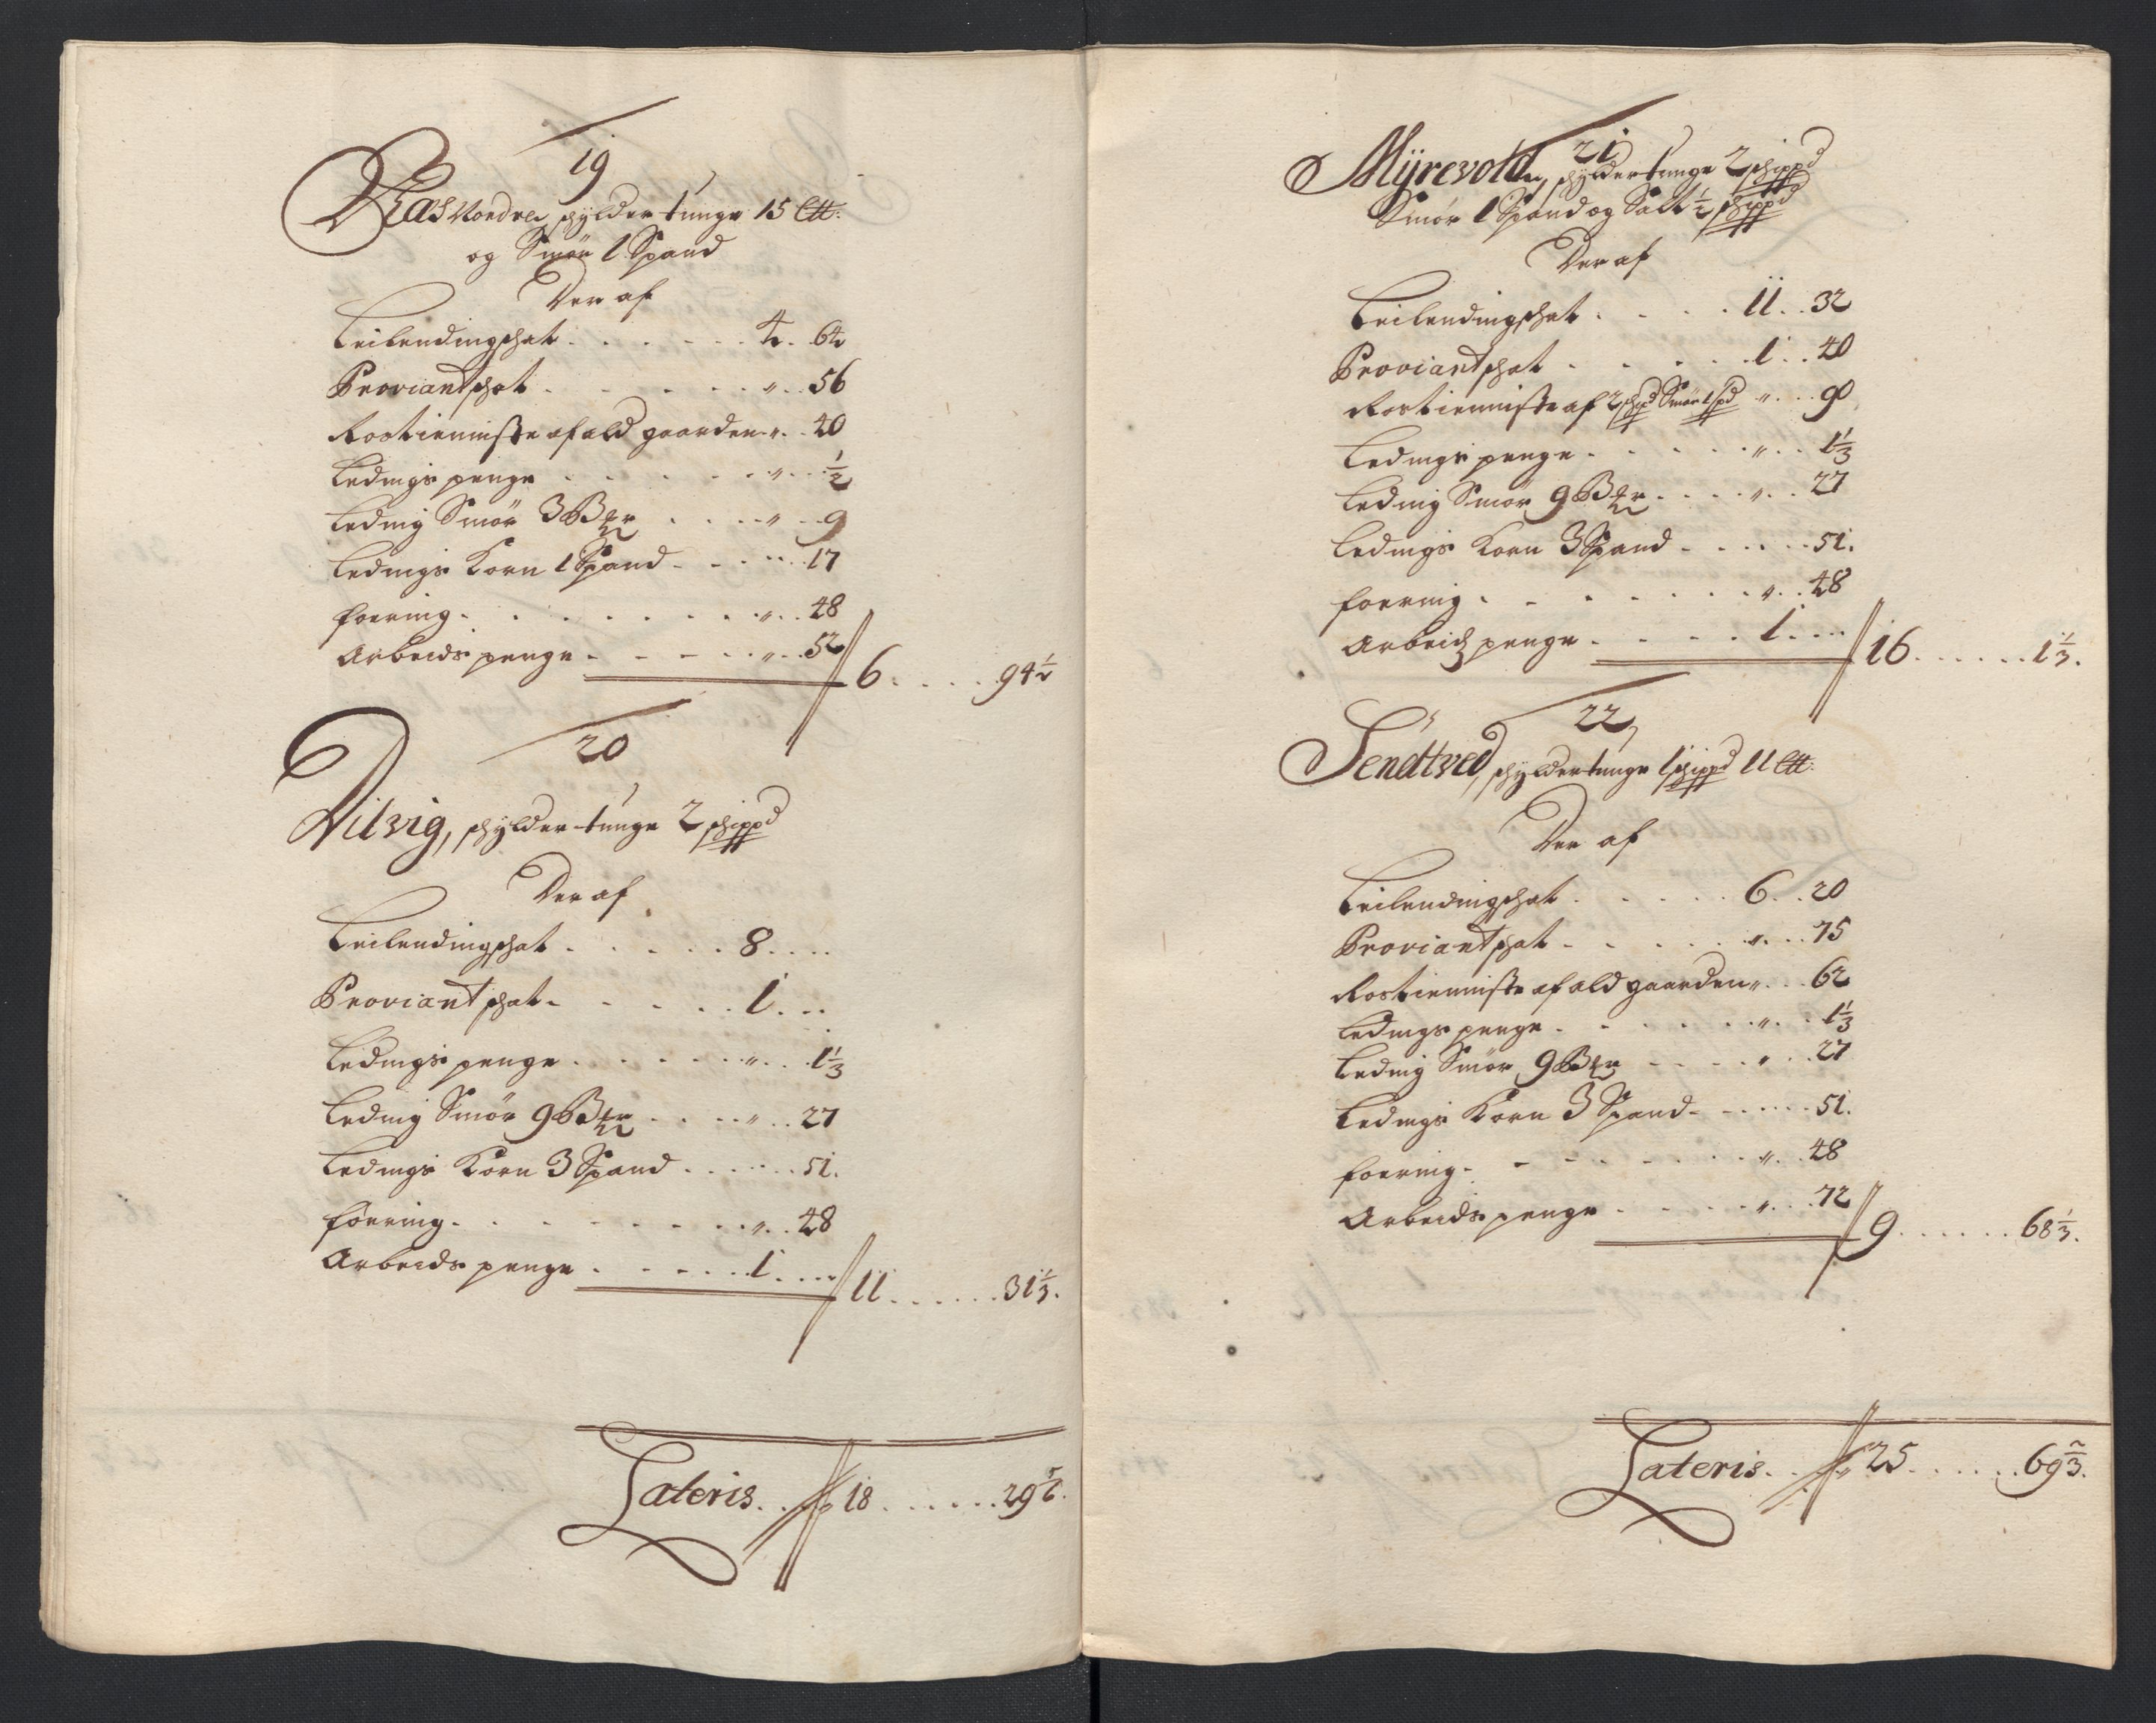 19
Næs Nordre, schylder tunge 15 Ltt:
og Smør 1 Spand
Der af
Leilendingschat . . . . . . 4 . 64
Proviantschat . . . . . . " . . 56
Rostienniste af ald gaarden " . . 40
Ledings penge . . . . . . " . . ½
Leding Smør 3 . . . . " . . 9
Ledings Korn 1 Spand . . . " . . 17
foering . . . . . . . . " . . 48
Arbeids penge . . . . . " . . 52
6 . . . . 94½
20
Vilvig, schylder tunge 2 schippd
Der af
Leilendingschat . . . . . 8 . . .
Proviantschat . . . . . 1 . . .
Ledings penge . . . . . . " . . 1⅓
Leding Smør 9 . . . . " . . 27
Ledings Korn 3 Spand . . . . . . 51.
föering . . . . . . . . " . . 48
Arbeids penge . . . . . 1 . . .
11 . . . . . . 31⅓.
Lateris . . 18 . . . . . . 29⅚.
21
Mÿrevolden, schylder tunge 2 schippd
Smør 1 Spand og Salt ½ schippd
Der af
Leilendingschat . . . . . 11 . . 32
Proviantschat . . . . . 1 . . 40
Rostienniste af 2 schpd Smør 1 spd " . . 90
Ledings penge . . . . . " . . 1⅓
Leding Smør 9 . . . . " . . 27
Ledings Korn 3 Spand . . . . . 51.
foering . . . . . . . " . . 48
Arbeids penge . . . . 1 . . .
16 . . . . . . 1⅓.
22
Sendtved, schylder tunge 1 schippd 11 Ltt:
Der af
Leilendingschat . . . . . 6 . . 20
Proviantschat . . . . . . " . . 75
Rostienniste af ald gaarden " . . 62
Ledings penge . . . . . . " . . 1⅓
Leding Smør 9 . . . . " . . 27
Ledings Korn 3 Spand . . . . . . 51.
foering . . . . . . . . " . . 48
Arbeids penge . . . . . " . . 72
9 . . . . . . 68⅓.
Lateris . . 25 . . . . . . 69⅔.